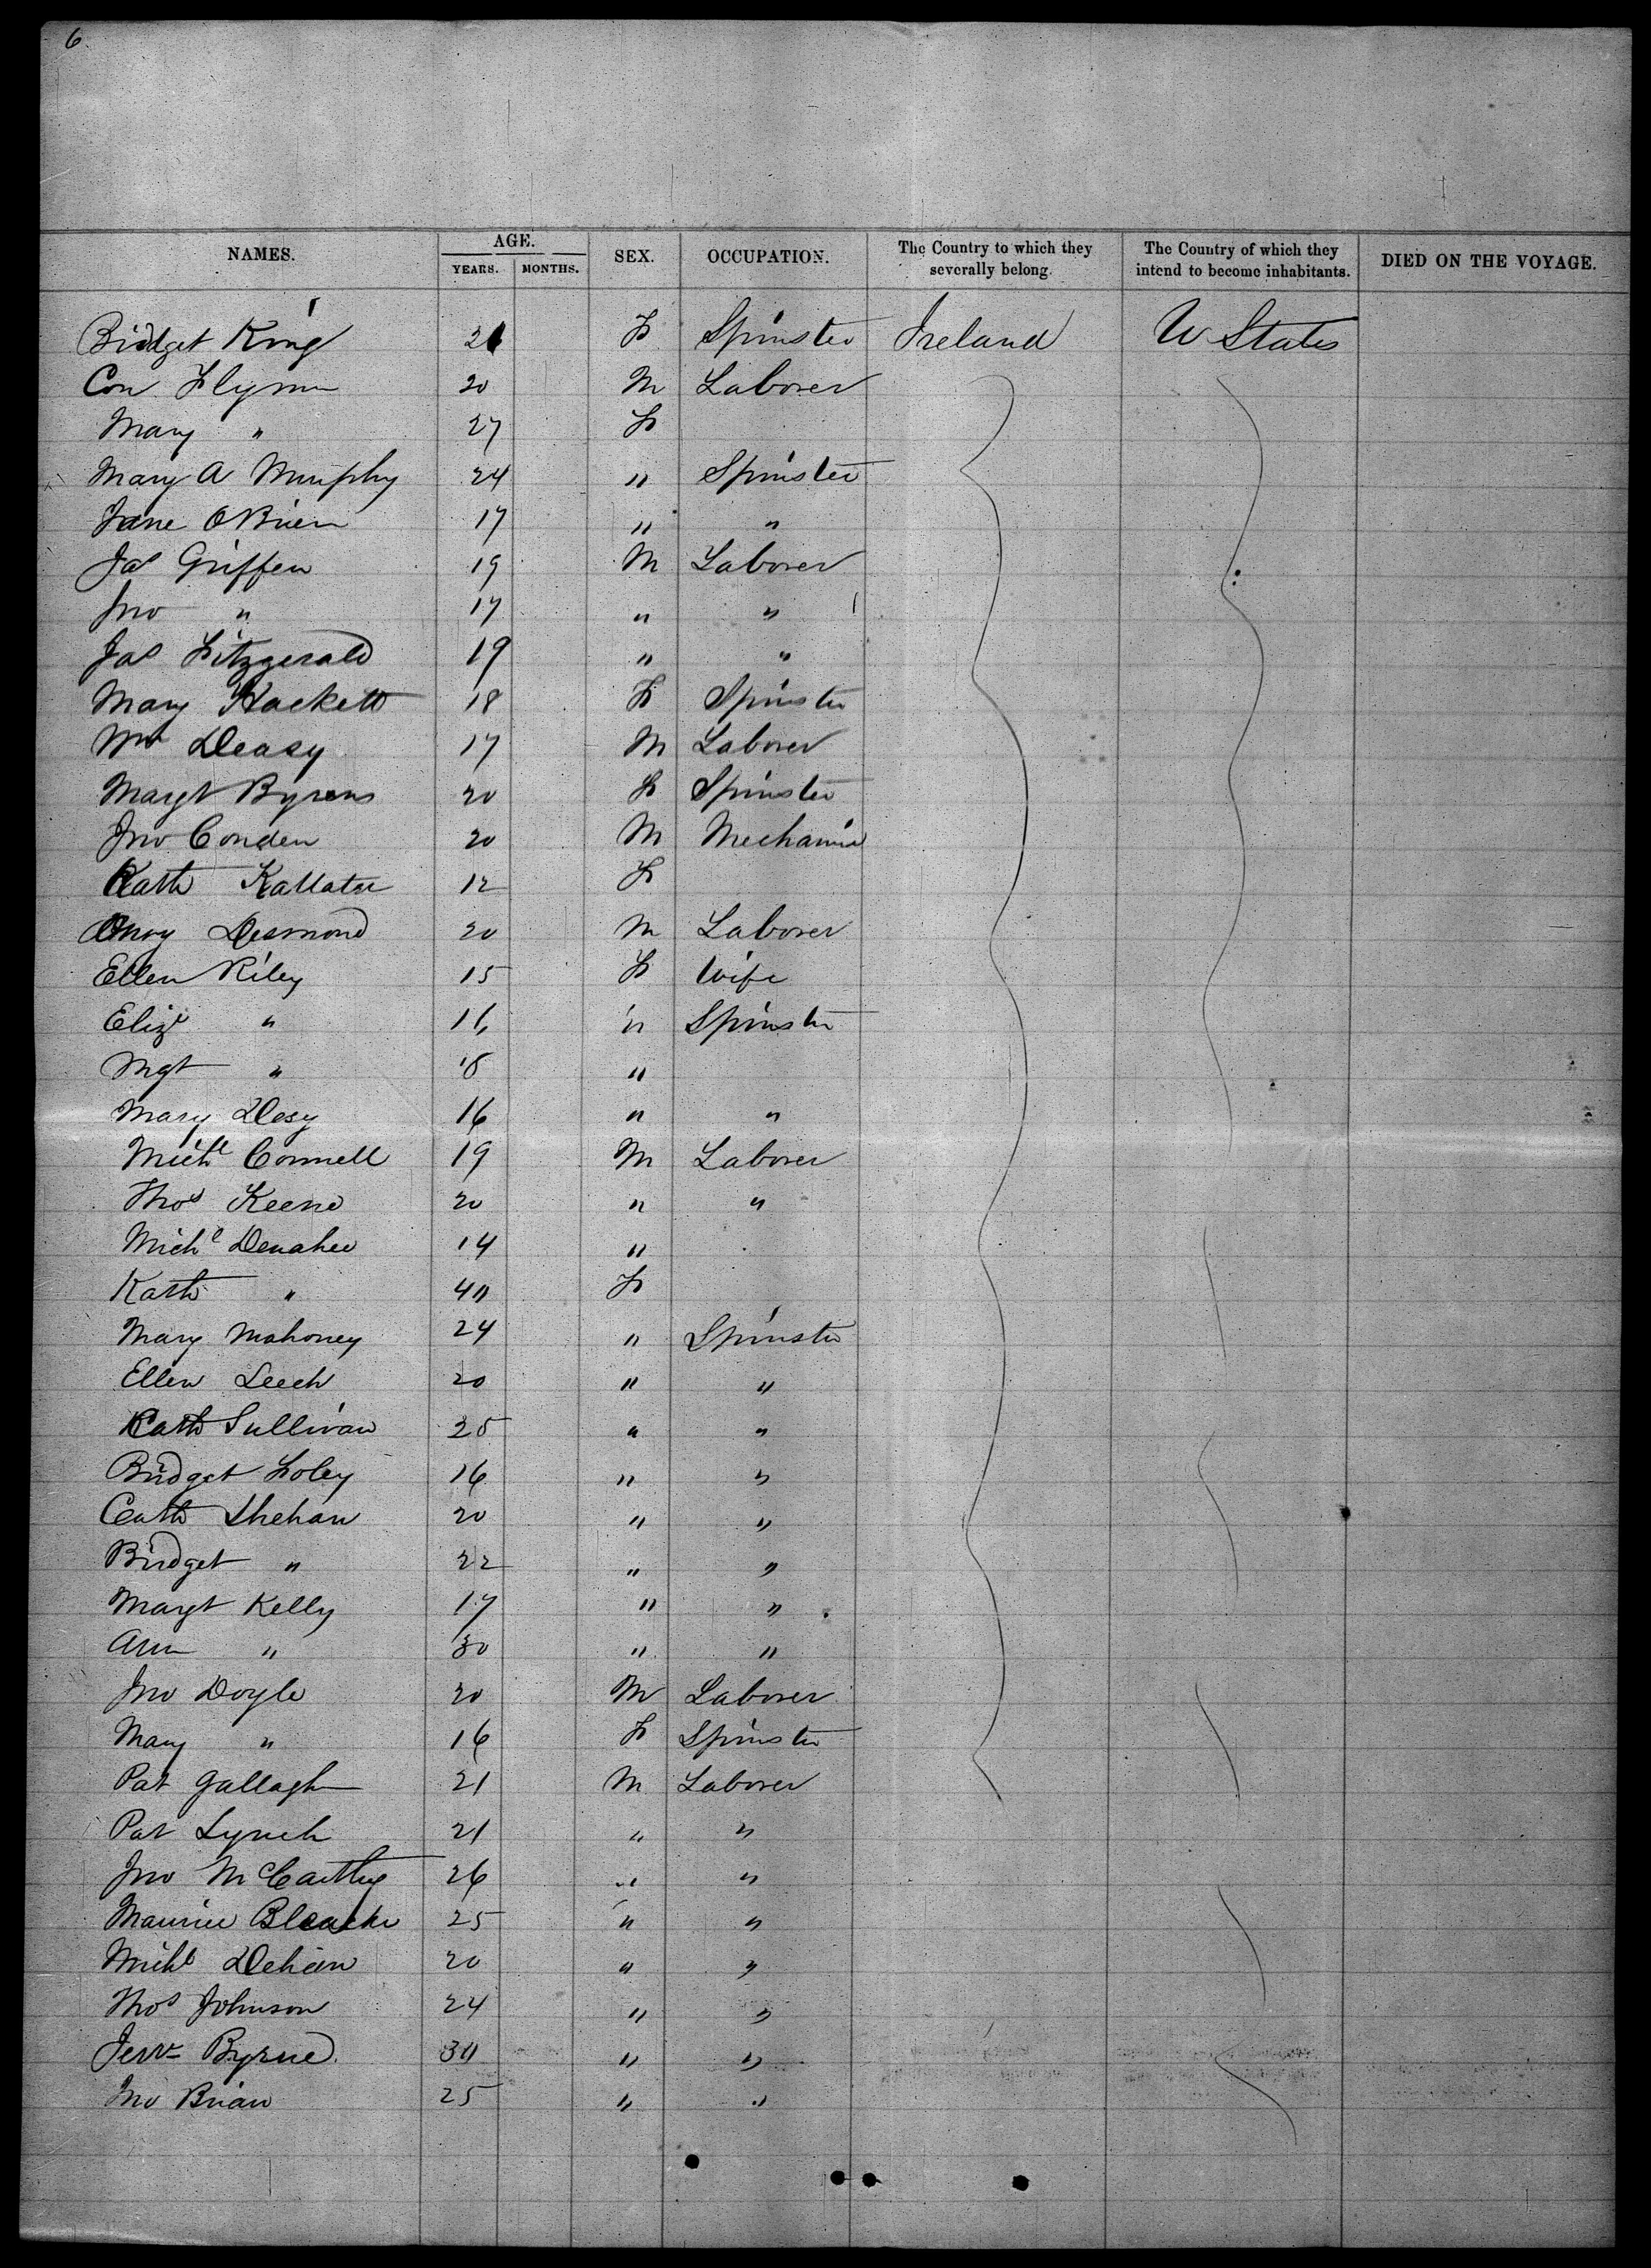 6
NAMES. AGE. SEX. OCCUPATION. The Country to which they severally belong. The Country of which they intend to become inhabitants. DIED ON THE VOYAGE.
YEARS. MONTHS.
Bridget King 21 F Spinster Ireland U States
Con Flynn 20 M Laborer
Mary " 27 F
Mary A Murphy 24 " Spinster
Jane OBrien 17 " "
Jas Griffen 19 M Laborer
Jno " 17 " "
Jas Fitzgerald 19 " "
Mary Hackett 18 F Spinster
Wm Deasy 17 M Laborer
Margt Byrens 20 F Spinster
Jno Conden 20 M Mechanic
Kath 12 F
Desmond 20 M Laborer
Ellen Riley 15 F Wife
Eliz " 16 " Spinster
Mgt " 18 "
Mary Desy 16 " "
Michl Connell 19 M Laborer
Thos Keene 20 " "
Michl Denahee 14 "
Kath " 40 F
Mary Mahoney 24 " Spinster
Ellen Leech 20 " "
Cath Sullivan 25 " "
Bridget Foley 16 " "
Cath Shehan 20 " "
Bridget " 22 " "
Margt Kelly 17 " "
Ann " 30 " "
Jno Doyle 20 M Laborer
Mary " 16 F Spinster
Pat Gallagh 21 M Laborer
Pat Lynch 21 " "
Jno McCarthy 26 " "
Maurice 25 " "
Michl 20 " "
Thos Johnson 24 " "
Byrne 30 " "
Jno Brian 25 " "